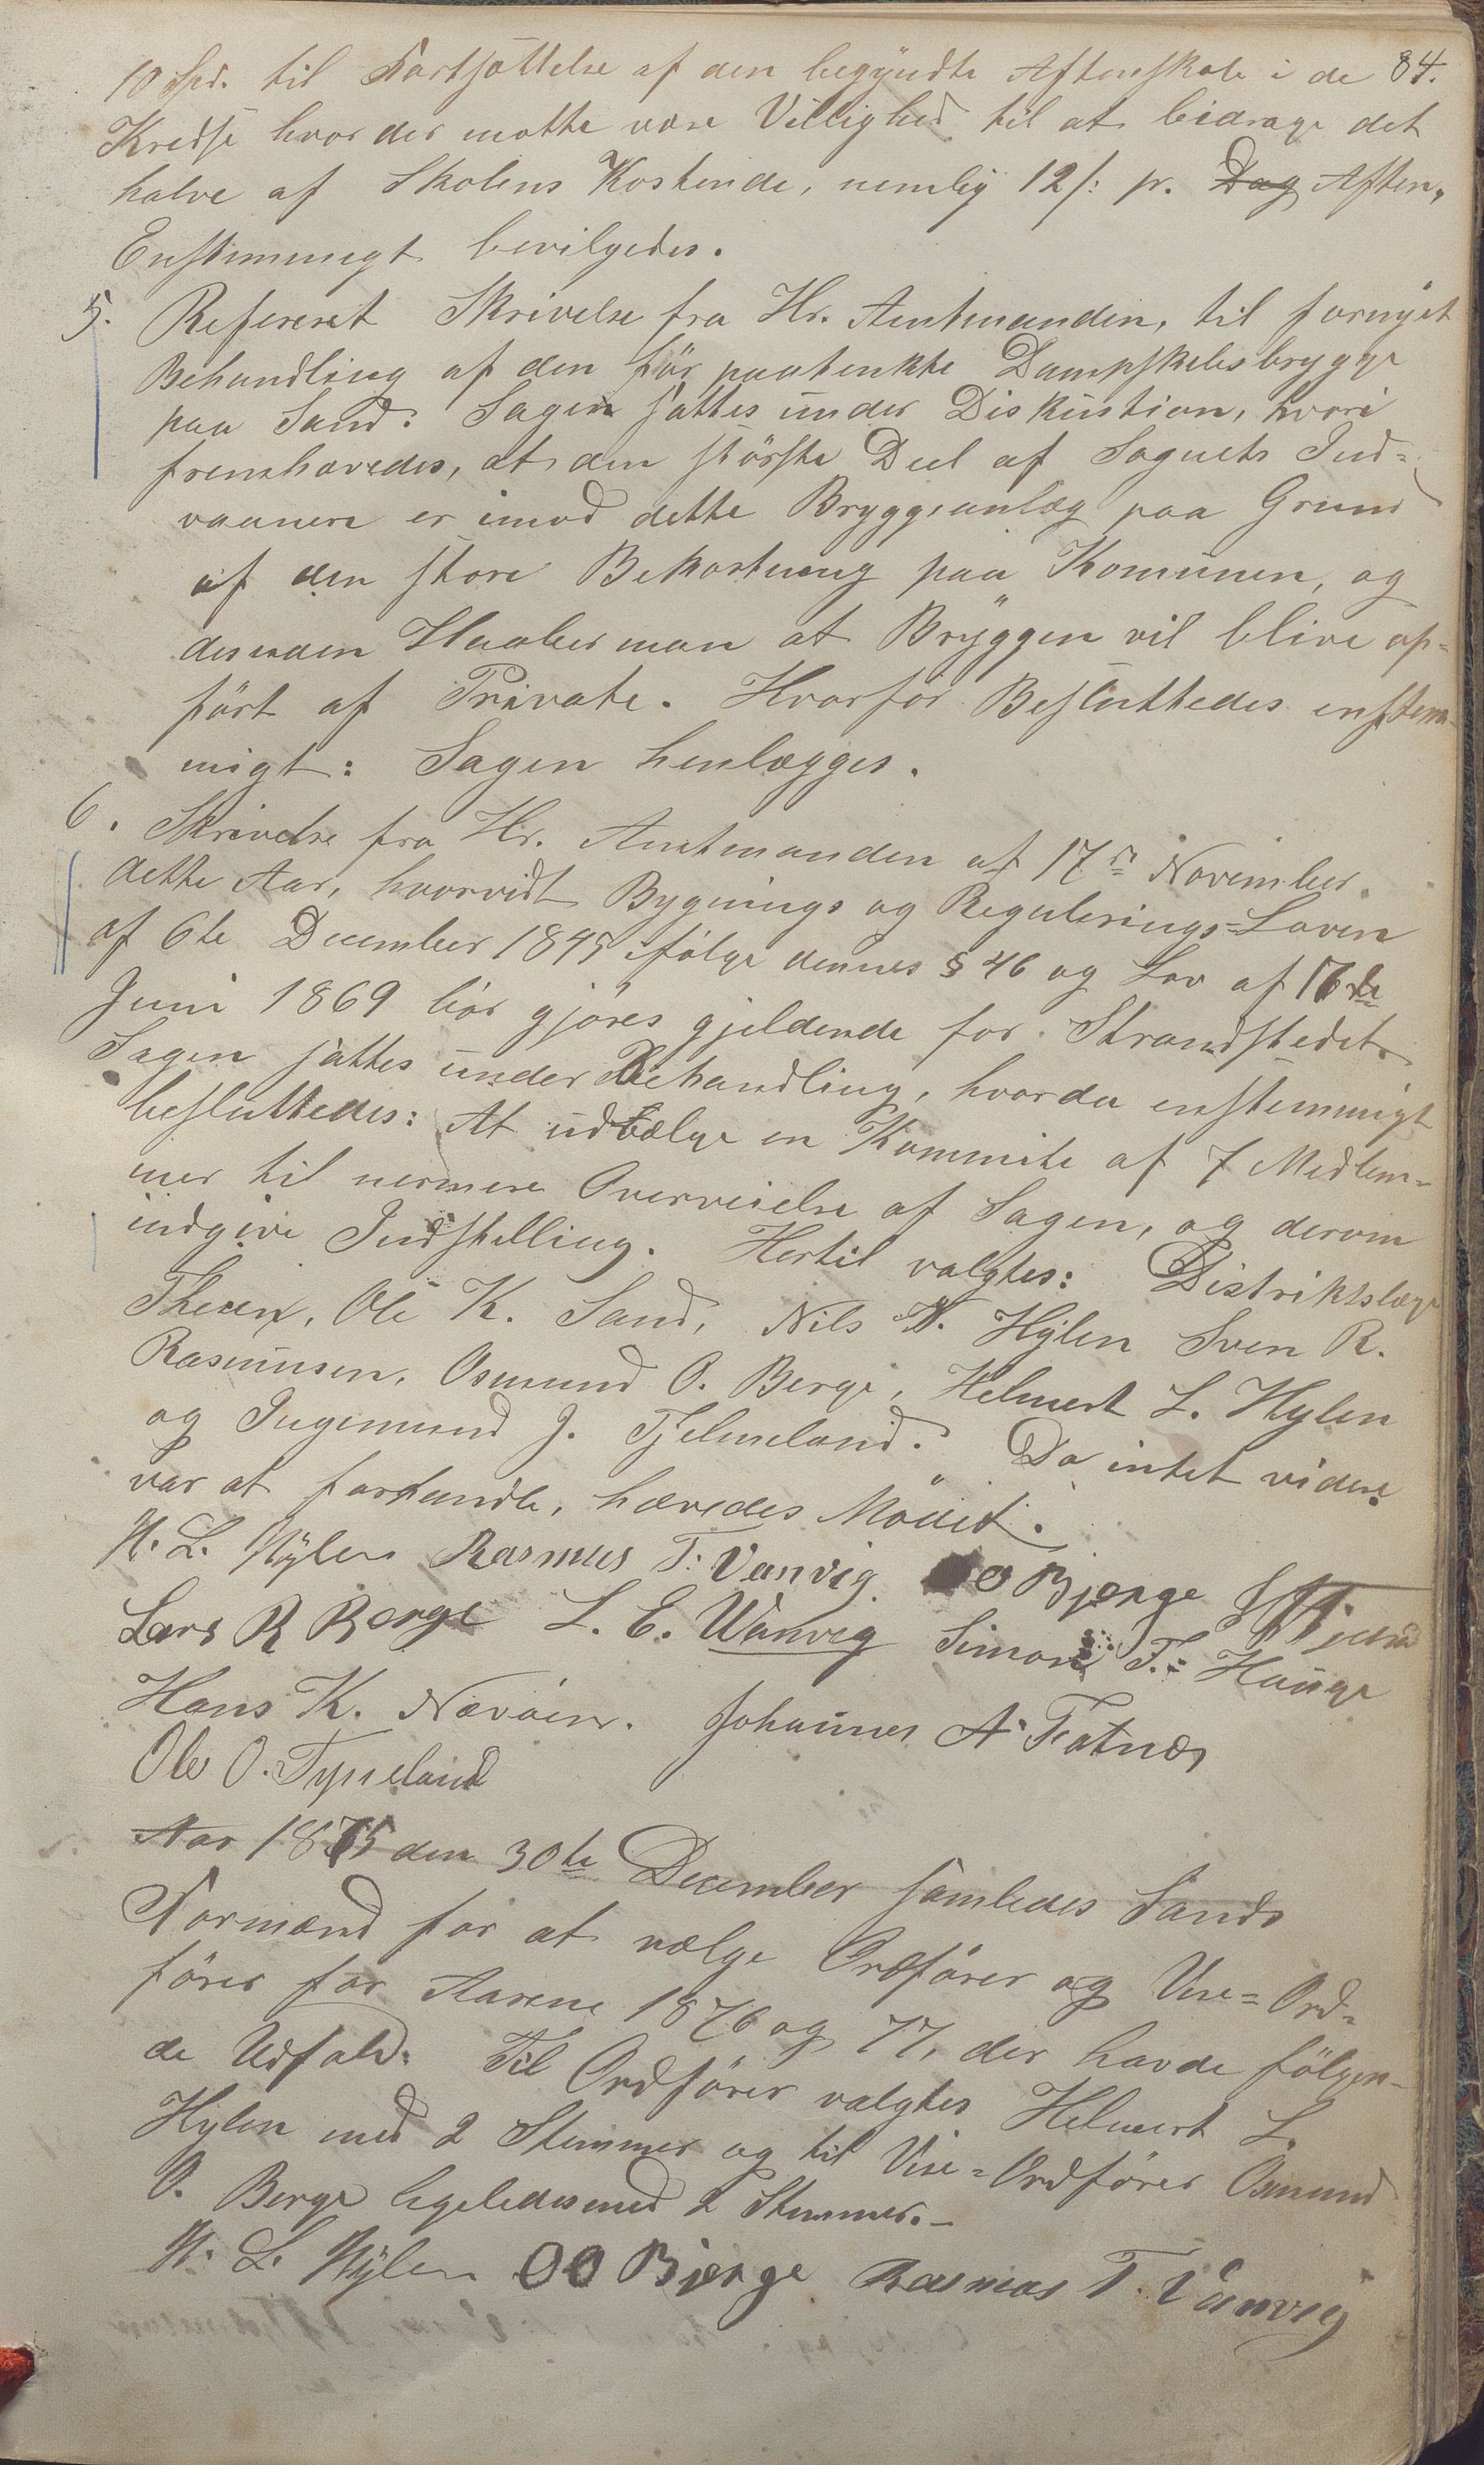 84.
10 Spd. til Fortsöttelse af den begyndte Aftenskole i de
Kredse hvor der motte være Villighed til at bidrage det
halve af Skolens Kostende, nemlig 12 s: pr. Dag Aften,
Enstemmigt bevilgedes.
5. Refereret Skrivelse fra Hr. Amtmanden, til fornyet
Behandling af den för paatenkte Dampskibsbrygge
paa Sand. Sagen sattes under Diskustion, hvori
fremhævedes, at den störste Deel af Sognets Ind=
vaanere er imod dette Bryggeanlæg paa Grund
af den store Bekostning paa Komunen, og
desuden Haaber man at Bryggen vil blive op=
fört af Private. Hvorfor Besluttedes enstem-
migt: Sagen henlægges.
6. Skrivelse fra Hr. Amtmanden af 17de November
dette Aar, hvorvidt Bygnings og Regulerings=Loven
af 6te December 1845 ifölge dennes § 46 og Lov af 16de
Juni 1869 bör gjöres gjeldende for Strandstedet.
Sagen sattes under Behandling, hvorda enstemmigt
besluttedes: At udvælge en Kommite af 7 Medlem=
mer til nermere Overveielse af Sagen, og derom
indgive Indstilling. Hertil valgtes: Distriktslæge
Ole K. Sand, Nils N. Hylen Sven R.
Rasmusen, Osmund O. Berge, Helmert L. Hylen
og Ingemund J. Tjelmeland. Da intet videre
var at forhandle, hævedes Mödet.
H. L. Hylen Rasmus T. Vanvig O O Bjerge
Lars R Berge L. E. Wanvig Simon T. Hauge
Hans K. Johannes A
Ole O. Tysseland
Aar 1875 den 30te December samledes Sands
Formænd for at vælge Ordförer og Vise=Ord=
förer for Aarene 1876 og 77, der havde fölgen-
de Udfald. Til Ordförer valgtes Helmert L.
Hylen med 2 Stemmer og til Vise=Ordförer Osmund
O. Berge ligeledes med 2 Stemmer.—
H. L. Hylen O O Bjerge Rasmus T. Vanvig